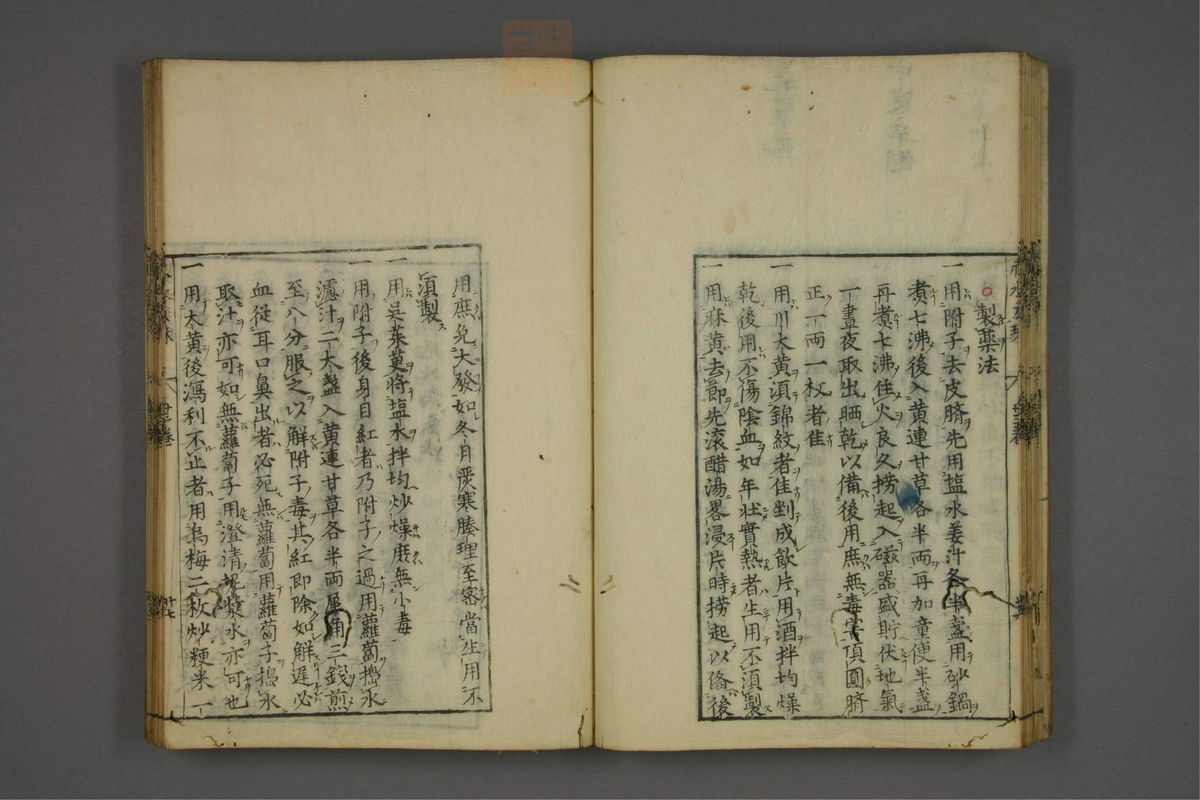 製藥法
一用附子去皮臍先用塩水姜汁各半盞用砂鍋
煑七沸後入黄連甘草各半両再加童便半盞
再煑七沸住火良久撈起入磁器盛貯伏地氣
一晝夜取出晒乾以備後用庶無毒害頂圓臍
正一両一枚者佳
一用川大黄湏錦紋者佳剉成飲片用酒拌均燥
乾後用不傷陰血如年壮實熱者生用不湏製
一用麻黄去節先滚醋湯畧浸片時撈起以俻後
用庶免大發如冬月嚴寒腠理至密當生用不
湏製
一用吳茱萸將塩水拌均炒燥庶無小毒
一用附子後身目紅者乃附子之過用蘿蔔搗水
濾汁二大盞入黄連甘草各半両犀角三錢煎
至八分服之以解附子毒其紅即除如解遲必
血從耳口鼻出者必死無蘿蔔用蘿蔔子搗水
取汁亦可如無蘿蔔子用澄清泥漿水亦可也
一用大黄後瀉利不止者用烏梅二枚炒粳米一